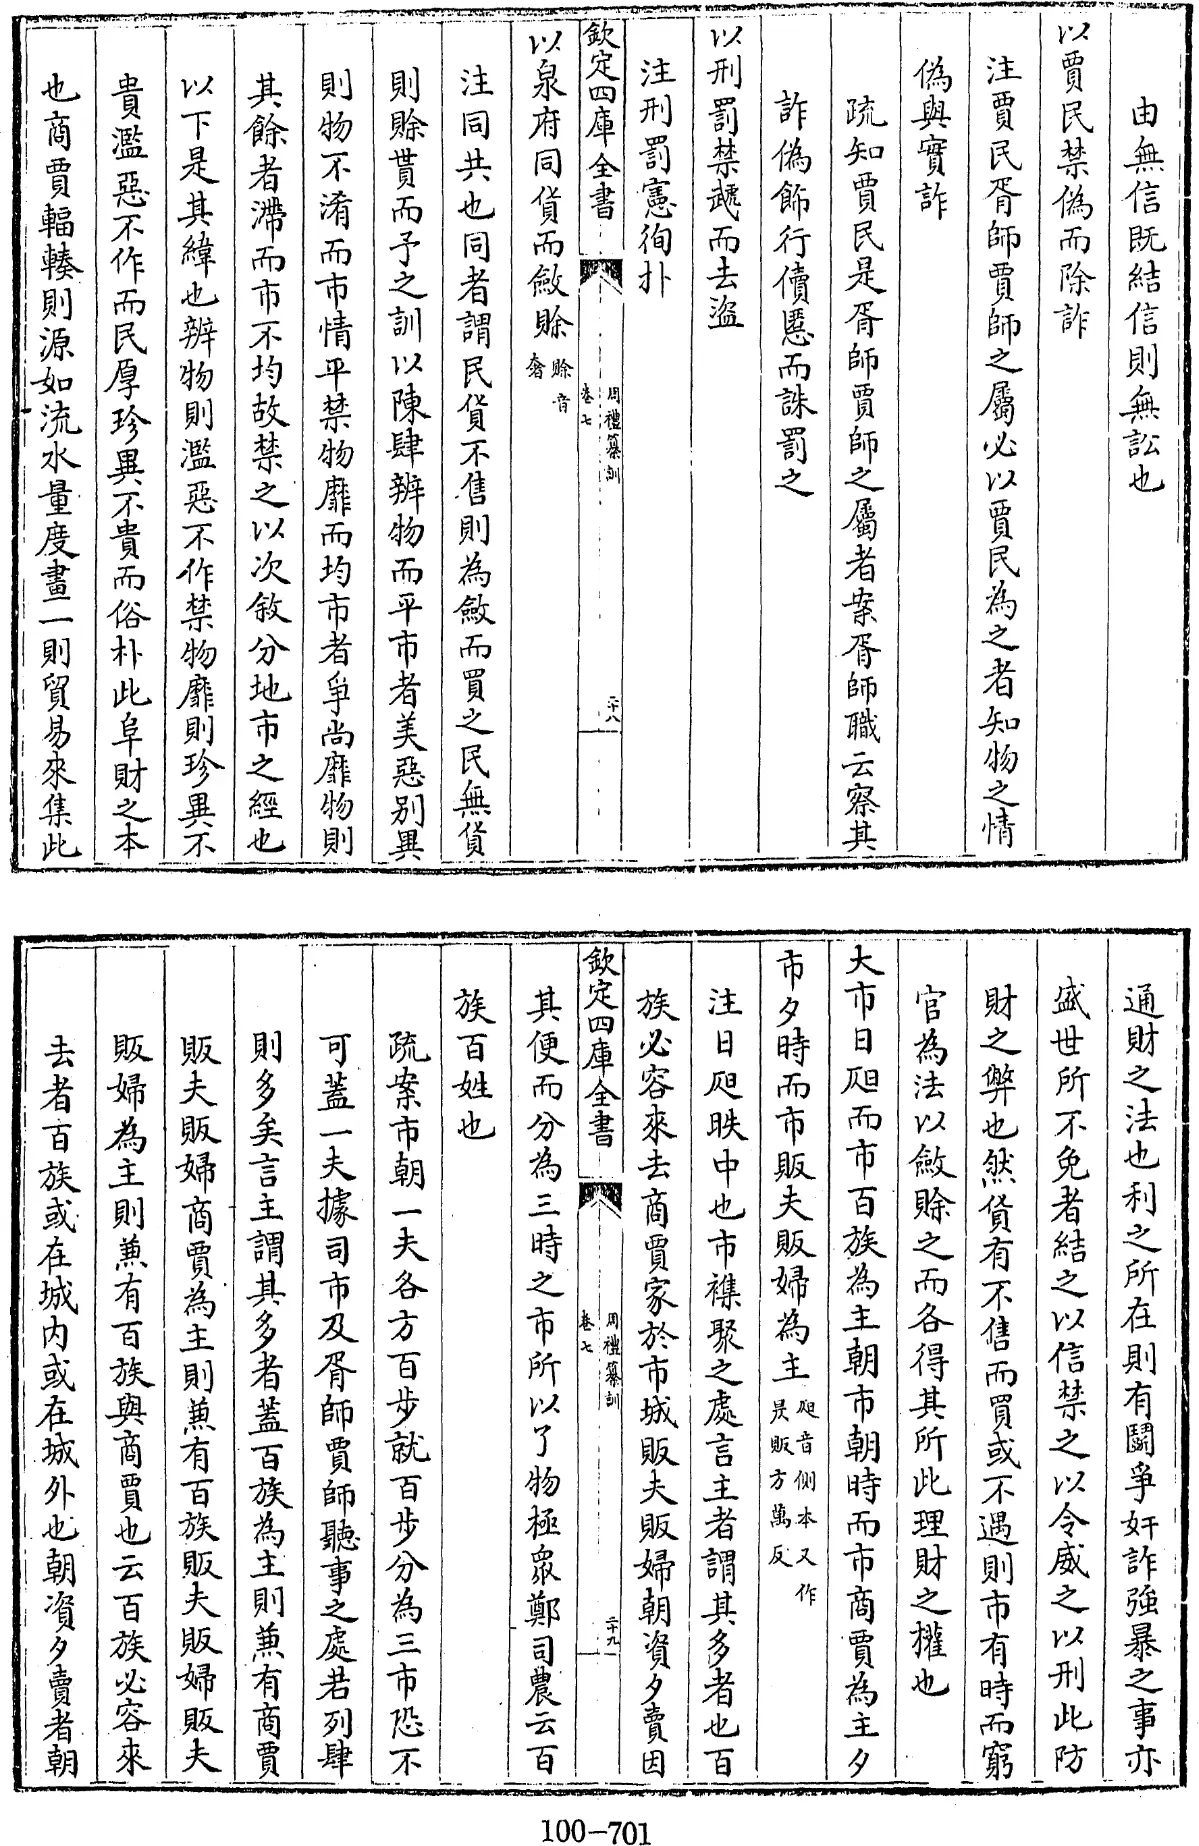 由無信既結信則無訟也
以賈民禁偽而除詐
注賈民胥師賈師之屬必以賈民為之者知物之情
偽與實詐
疏知賈民是胥師賈師之屬者案胥師職云察其
詐偽飾行儥慝而誅罰之
以刑罰禁虣而去盜
注刑罰憲徇扑
欽定四庫全書
周禮纂訓
卷七
二十八
以泉府同貨而斂賖賖音奢
注同共也同者謂民貨不售則為斂而買之民無貨
則賖貰而予之訓以陳肆辨物而平市者美惡別異
則物不淆而市情平禁物靡而均市者爭尚靡物則
其餘者滯而市不均故禁之以次敘分地市之經也
以下是其緯也辨物則濫惡不作禁物靡則珍異不
貴濫惡不作而民厚珍異不貴而俗朴此阜財之本
也商賈輻輳則源如流水量度畫一則貿易來集此
通財之法也利之所在則有鬬爭奸詐強暴之事亦
盛世所不免者結之以信禁之以令威之以刑此防
財之弊也然貨有不售而買或不遇則市有時而窮
官為法以斂賖之而各得其所此理財之權也
大市日昃而市百族為主朝市朝時而市商賈為主夕
市夕時而市販夫販婦為主昃音側本又作昗販方萬反
注日昃昳中也市襍聚之處言主者謂其多者也百
族必容來去商賈家於市城販夫販婦朝資夕賣因
欽定四庫全書
周禮纂訓
卷七
二十九
其便而分為三時之市所以了物極衆鄭司農云百
族百姓也
疏案市朝一夫各方百步就百步分為三市恐不
可蓋一夫據司市及胥師賈師聽事之處若列肆
則多矣言主謂其多者蓋百族為主則兼有商賈
販夫販婦商賈為主則兼有百族販夫販婦販夫
販婦為主則兼有百族與商賈也云百族必容來
去者百族或在城內或在城外也朝資夕賣者朝
100-701